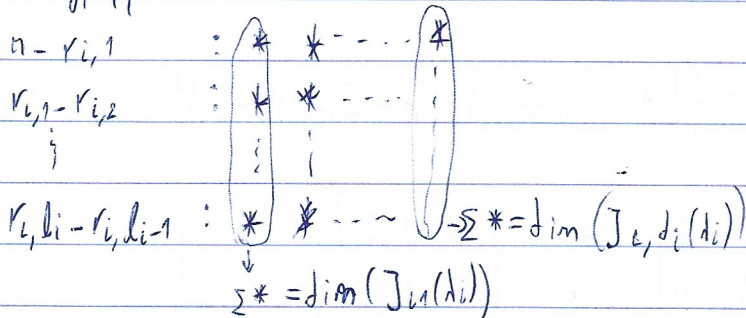 n - r_{i,1} : * * - - .... *
r_{i,1} - r_{i,2} : * * - - - -
r_{i,l_i} - r_{i,l_i-1} : * * - - ~ → Σ * = dim (J_{i,d_i}(λ_i))
↓
Σ * = dim (J_{i1}(λ_i))